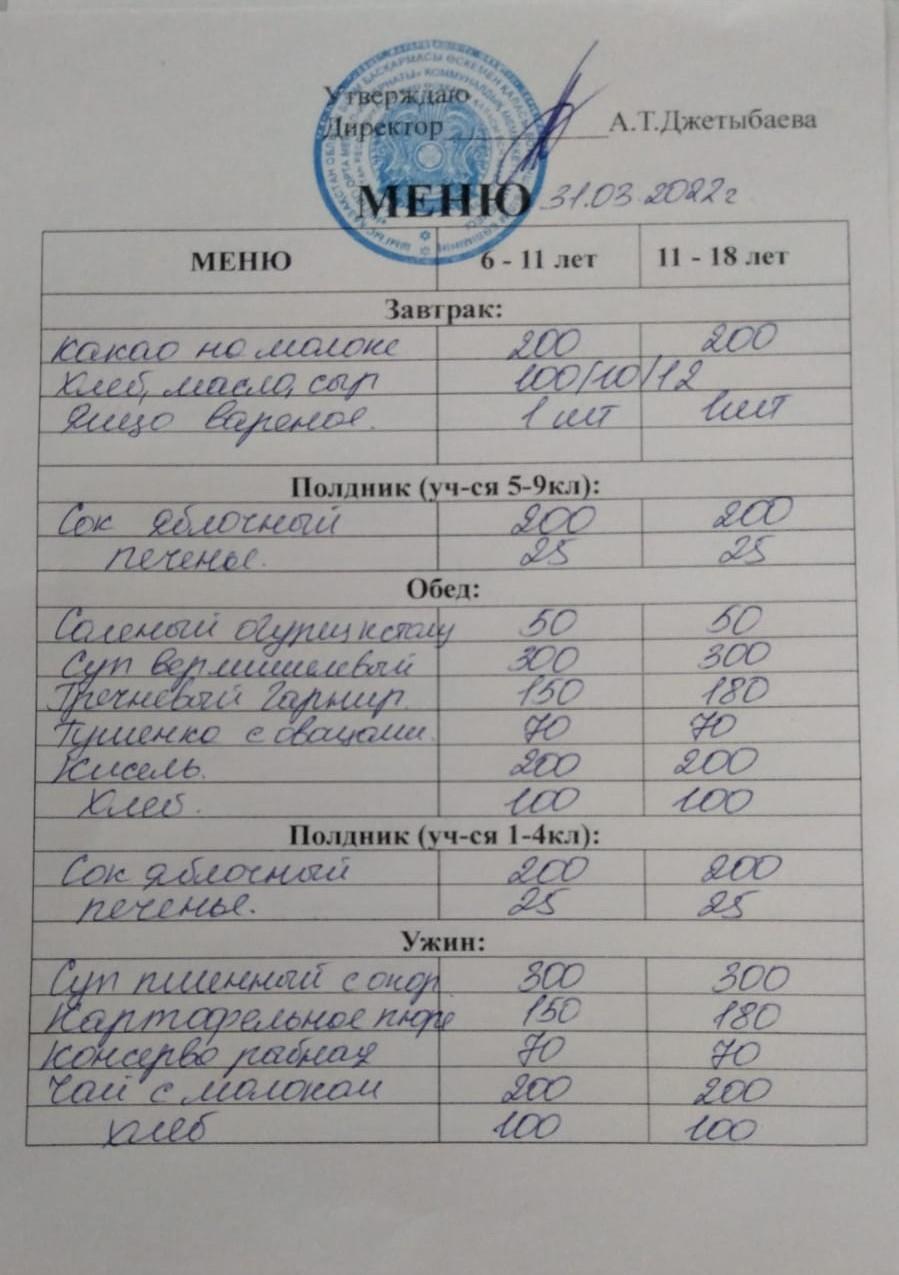 Утверждаю
Директор____________А.Т.Джетыбаева
МЕНЮ 31.03.2022г
МЕНЮ 6 - 11 лет 11 - 18 лет
Завтрак:
Какао на молоке 200 200
Хлеб, масло, сыр 100/10/12
Яйцо вареное. 1 шт 1шт
Полдник (уч-ся 5-9кл):
Сок яблочный 200 200
печенье. 25 25
Обед:
Соленый огурец к столу 50 50
Суп вермишелевый 300 300
Гречневый гарнир. 150 180
Тушенко с овощами. 70 70
Кисель. 200 200
Хлеб. 100 100
Полдник (уч-ся 1-4кл):
Сок яблочный 200 200
печенье. 25 25
Ужин:
Суп пшенный с 300 300
Картофельное пюре 150 180
Консерва рыбная 70 70
Чай с молоком 200 200
хлеб 100 100